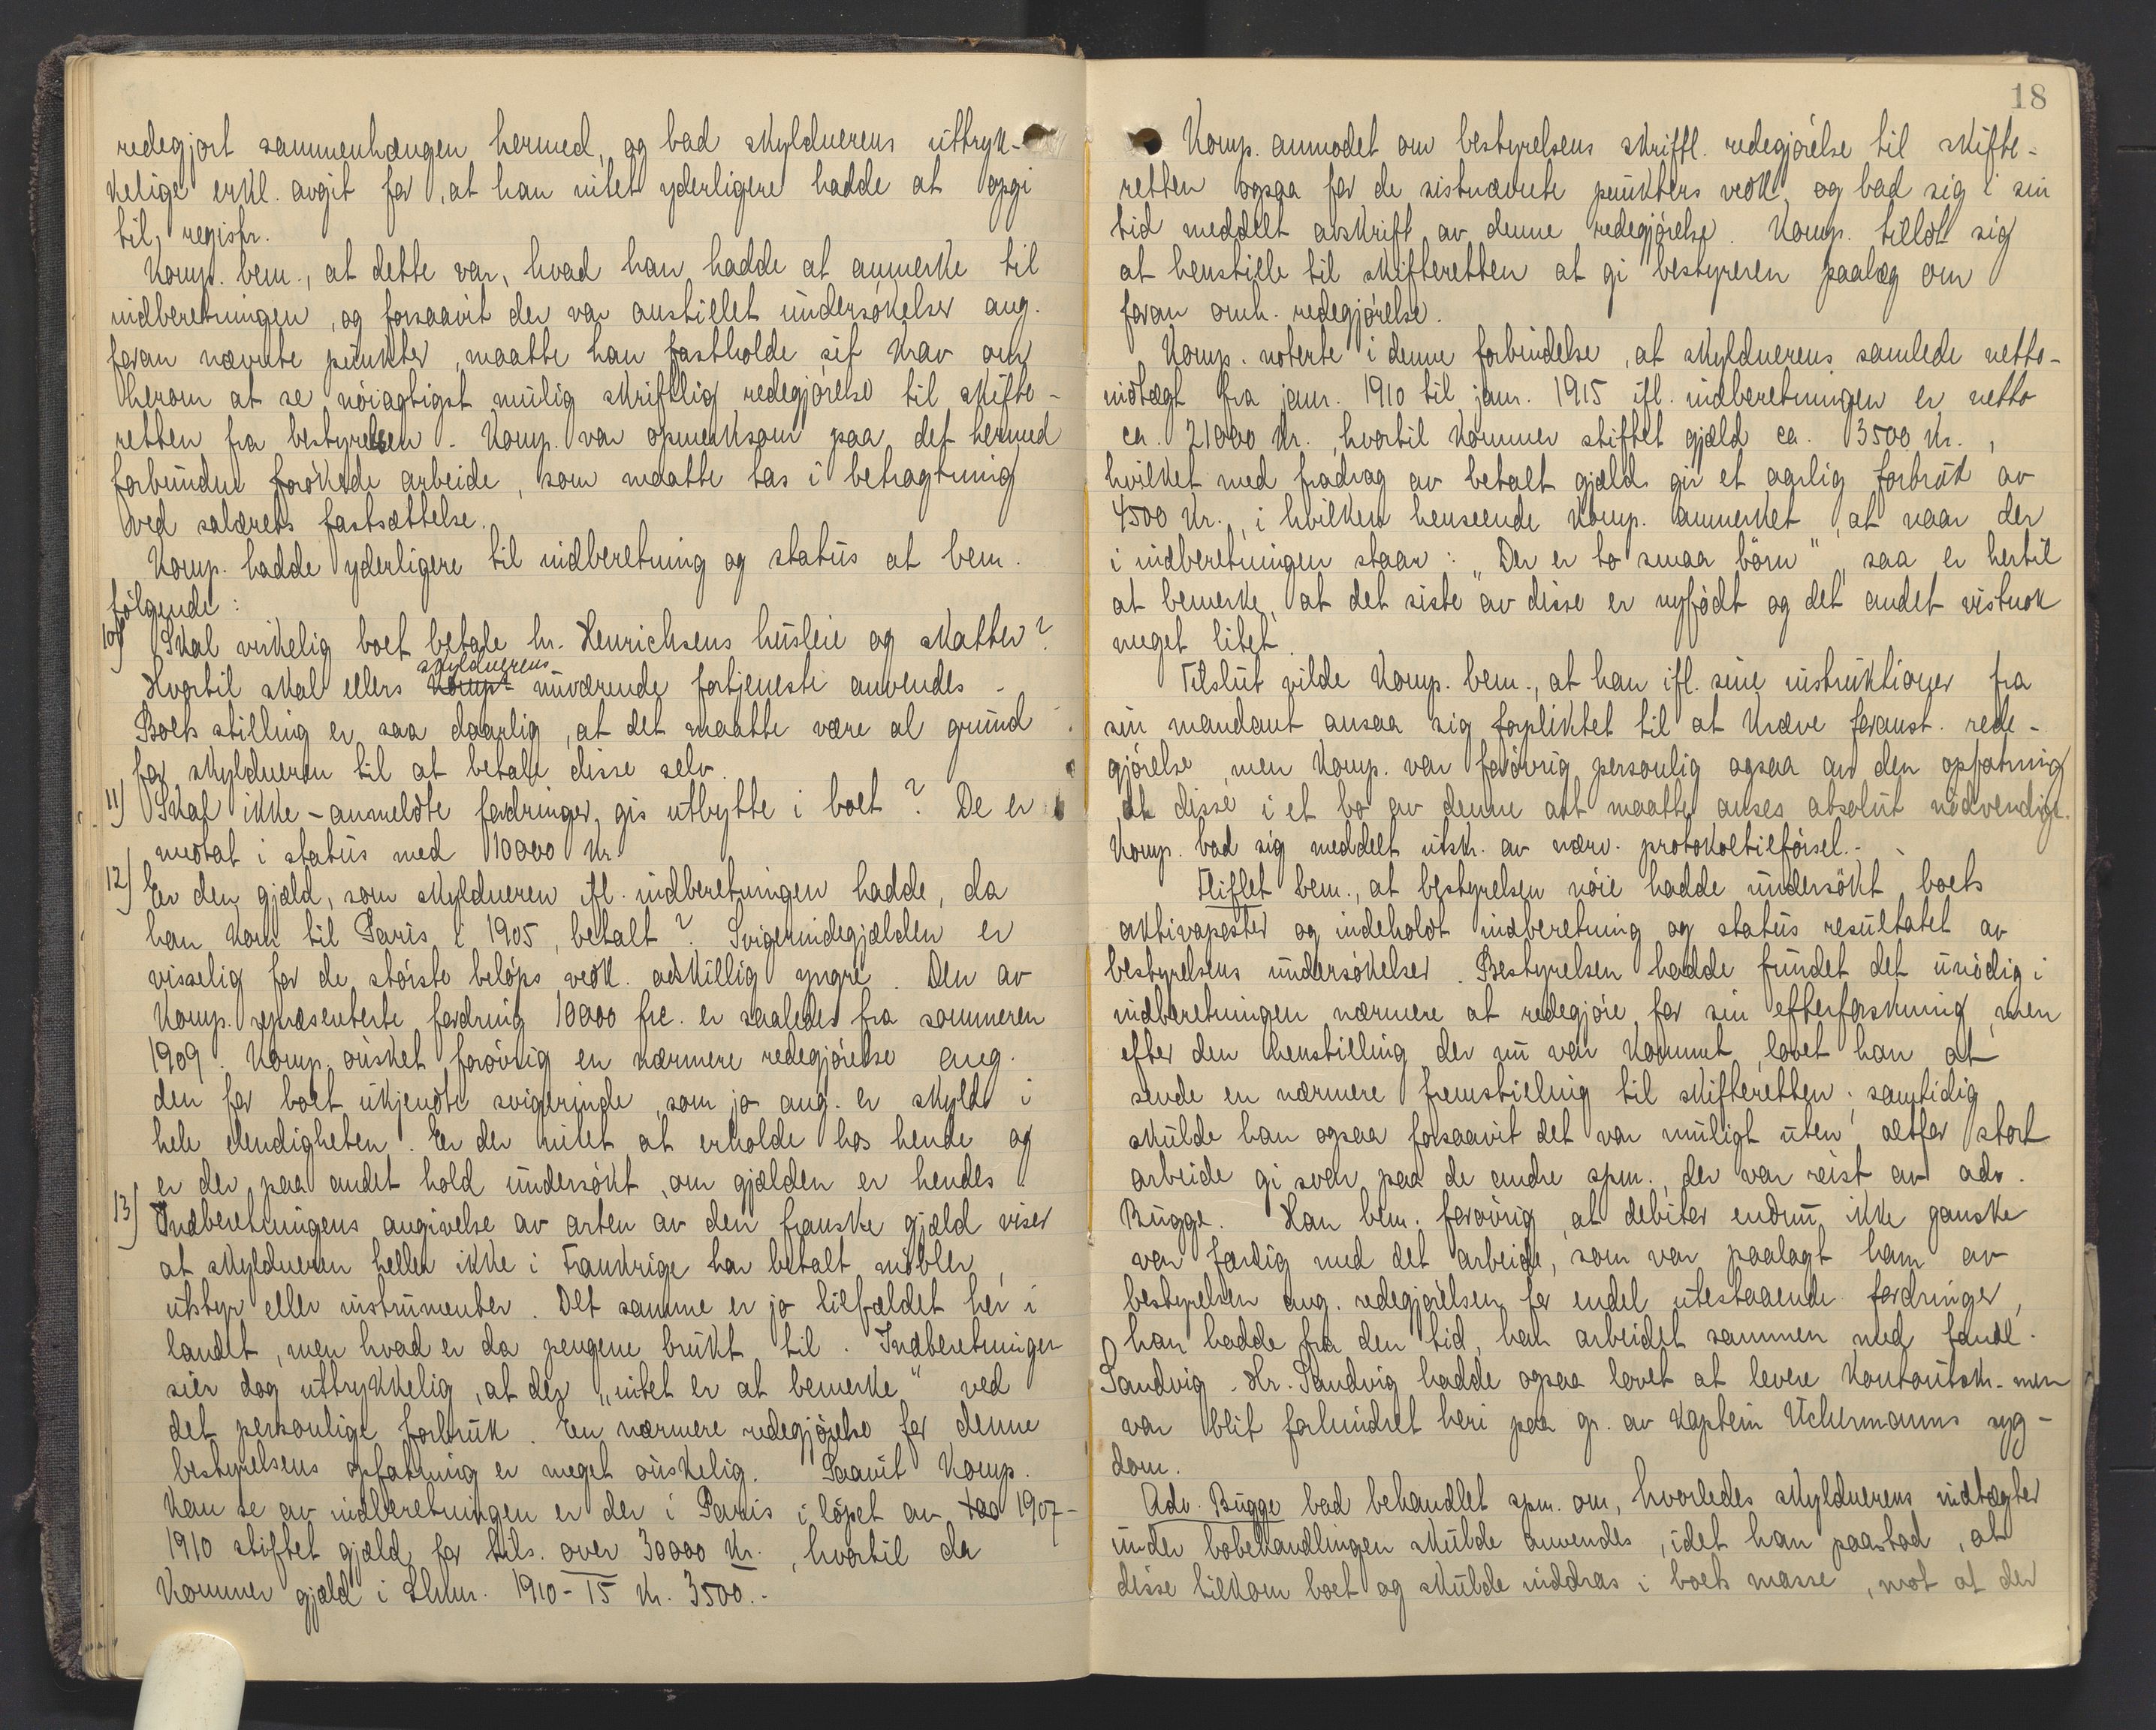 redegjort sammenhængen hermed, og bad skyldnerens uttryk-
kelige erkl. avgit for, at han intet yderligere hadde at opgi
til registr.
Komp. bem., at dette var, hvad han hadde at anmerke til
indberetningen, og forsaavit der var anstillet undersøkelser ang.
foran nævnte punkter, maatte han fastholde sit krav om
herom at se nøiagtigst mulig skriftlig redegjørelse til skifte-
retten fra bestyrelsen. Komp. var opmerksom paa det hermed
forbundne forøkede arbeide, som maatte tas i betragtning
ved salærets fastsættelse.
Komp. hadde yderligere til indberetning og status at bem.
følgende:
10) Skal virkelig boet betale hr. Henrichsens husleie og skatter?
skyldnerens
Hvortil skal ellers Komp. nuværende fortjeneste anvendes.
Boets stilling er saa daarlig, at det maatte være al grund
for skyldneren til at betale disse selv.
11) Skal ikke-anmeldte fordringer gis utbytte i boet? De er
medtat i status med 10000 kr.
12) Er den gjæld, som skyldneren ifl. indberetningen hadde, da
han kom til Paris i 1905, betalt? Svigerindegjælden er
visselig for de største beløps vedk. adskillig yngre. Den av
Komp. repræsenterte fordring 10000 frc. er saaledes fra sommeren
1909. Komp. ønsket forøvrig en nærmere redegjørelse ang.
den for boet ukjendte svigerinde, som jo ang. er skyld i
hele elendigheten. Er der intet at erholde hos hende og
er der paa andet hold undersøkt, om gjælden er hendes.
13) Indberetningens angivelse av arten av den franske gjæld viser
at skyldneren heller ikke i Frankrige har betalt møbler,
utstyr eller instrumenter. Det samme er jo tilfældet her i
landet, men hvad er da pengene brukt til. Indberetningen
sier dog uttrykkelig, at der "intet er at bemerke" ved
det personlige forbruk. En nærmere redegjørelse for denne
bestyrelsens opfatning er meget ønskelig. Saavit Komp.
kan se av indberetningen er der i Paris i løpet av 1907-
1910 stiftet gjæld for tils. over 30000 kr., hvortil da
kommer gjæld i Lhmr. 1910-15 kr. 3500.-
18
Komp. anmodet om bestyrelsens skriftl. redegjørelse til skifte-
retten ogsaa for de sistnævnte punkters vedk. og bad sig i sin
tid meddelt avskrift av denne redegjørelse. Komp. tillot sig
at henstille til skifteretten at gi bestyreren paalæg om
foran omh. redegjørelse.
Komp. noterte i denne forbindelse, at skyldnerens samlede netto-
indtægt fra janr. 1910 til janr. 1915 ifl. indberetningen er netto
ca. 21000 kr., hvortil kommer stiftet gjæld ca. 3500 kr.,
hvilket med fradrag av betalt gjæld gir et aarlig forbruk av
4500 kr., i hvilken henseende Komp. anmerket, at naar der
i indberetningen staar: "Der er to smaa børn", saa er hertil
at bemerke, at det siste av disse er nyfødt og det andet vistnok
meget litet.
Tilslut vilde Komp. bem., at han ifl. sine instruktioner fra
sin mandant ansaa sig forpliktet til at kræve foranst. rede-
gjørelse, men Komp. var forøvrig personlig ogsaa av den opfatning
at disse i et bo av denne art maatte anses absolut nødvendige.
Komp. bad sig meddelt utskr. av nærv. protokoltilførsel.-
Fliflet bem., at bestyrelsen nøie hadde undersøkt boets
aktivaposter og indeholdt indberetning og status resultatet av
bestyrelsens undersøkelser. Bestyrelsen hadde fundet det unødig i
indberetningen nærmere at redegjøre for sin efterforskning, men
efter den henstilling der nu var kommet, lovet han at
sende en nærmere fremstilling til skifteretten; samtidig
skulde han ogsaa forsaavit det var muligt uten altfor stort
arbeide gi svar paa de andre spm., der var reist av adv.
Bugge. Han bem. forøvrig, at debitor endnu ikke ganske
var færdig med det arbeide, som var paalagt ham av
bestyrelsen ang. redegjørelsen for endel utestaaende fordringer,
han hadde fra den tid, han arbeidet sammen med tandl.
Sandvig. Hr. Sandvig hadde ogsaa lovet at levere kontoutskr. men
var blit forhindret heri paa gr. av kaptein Uchermanns syg-
dom.
Adv. Bugge bad behandlet spm. om, hvorledes skyldnerens indtægter
under bobehandlingen skulde anvendes, idet han paastod, at
disse tilkom boet og skulde inddras i boets masse, mot at der